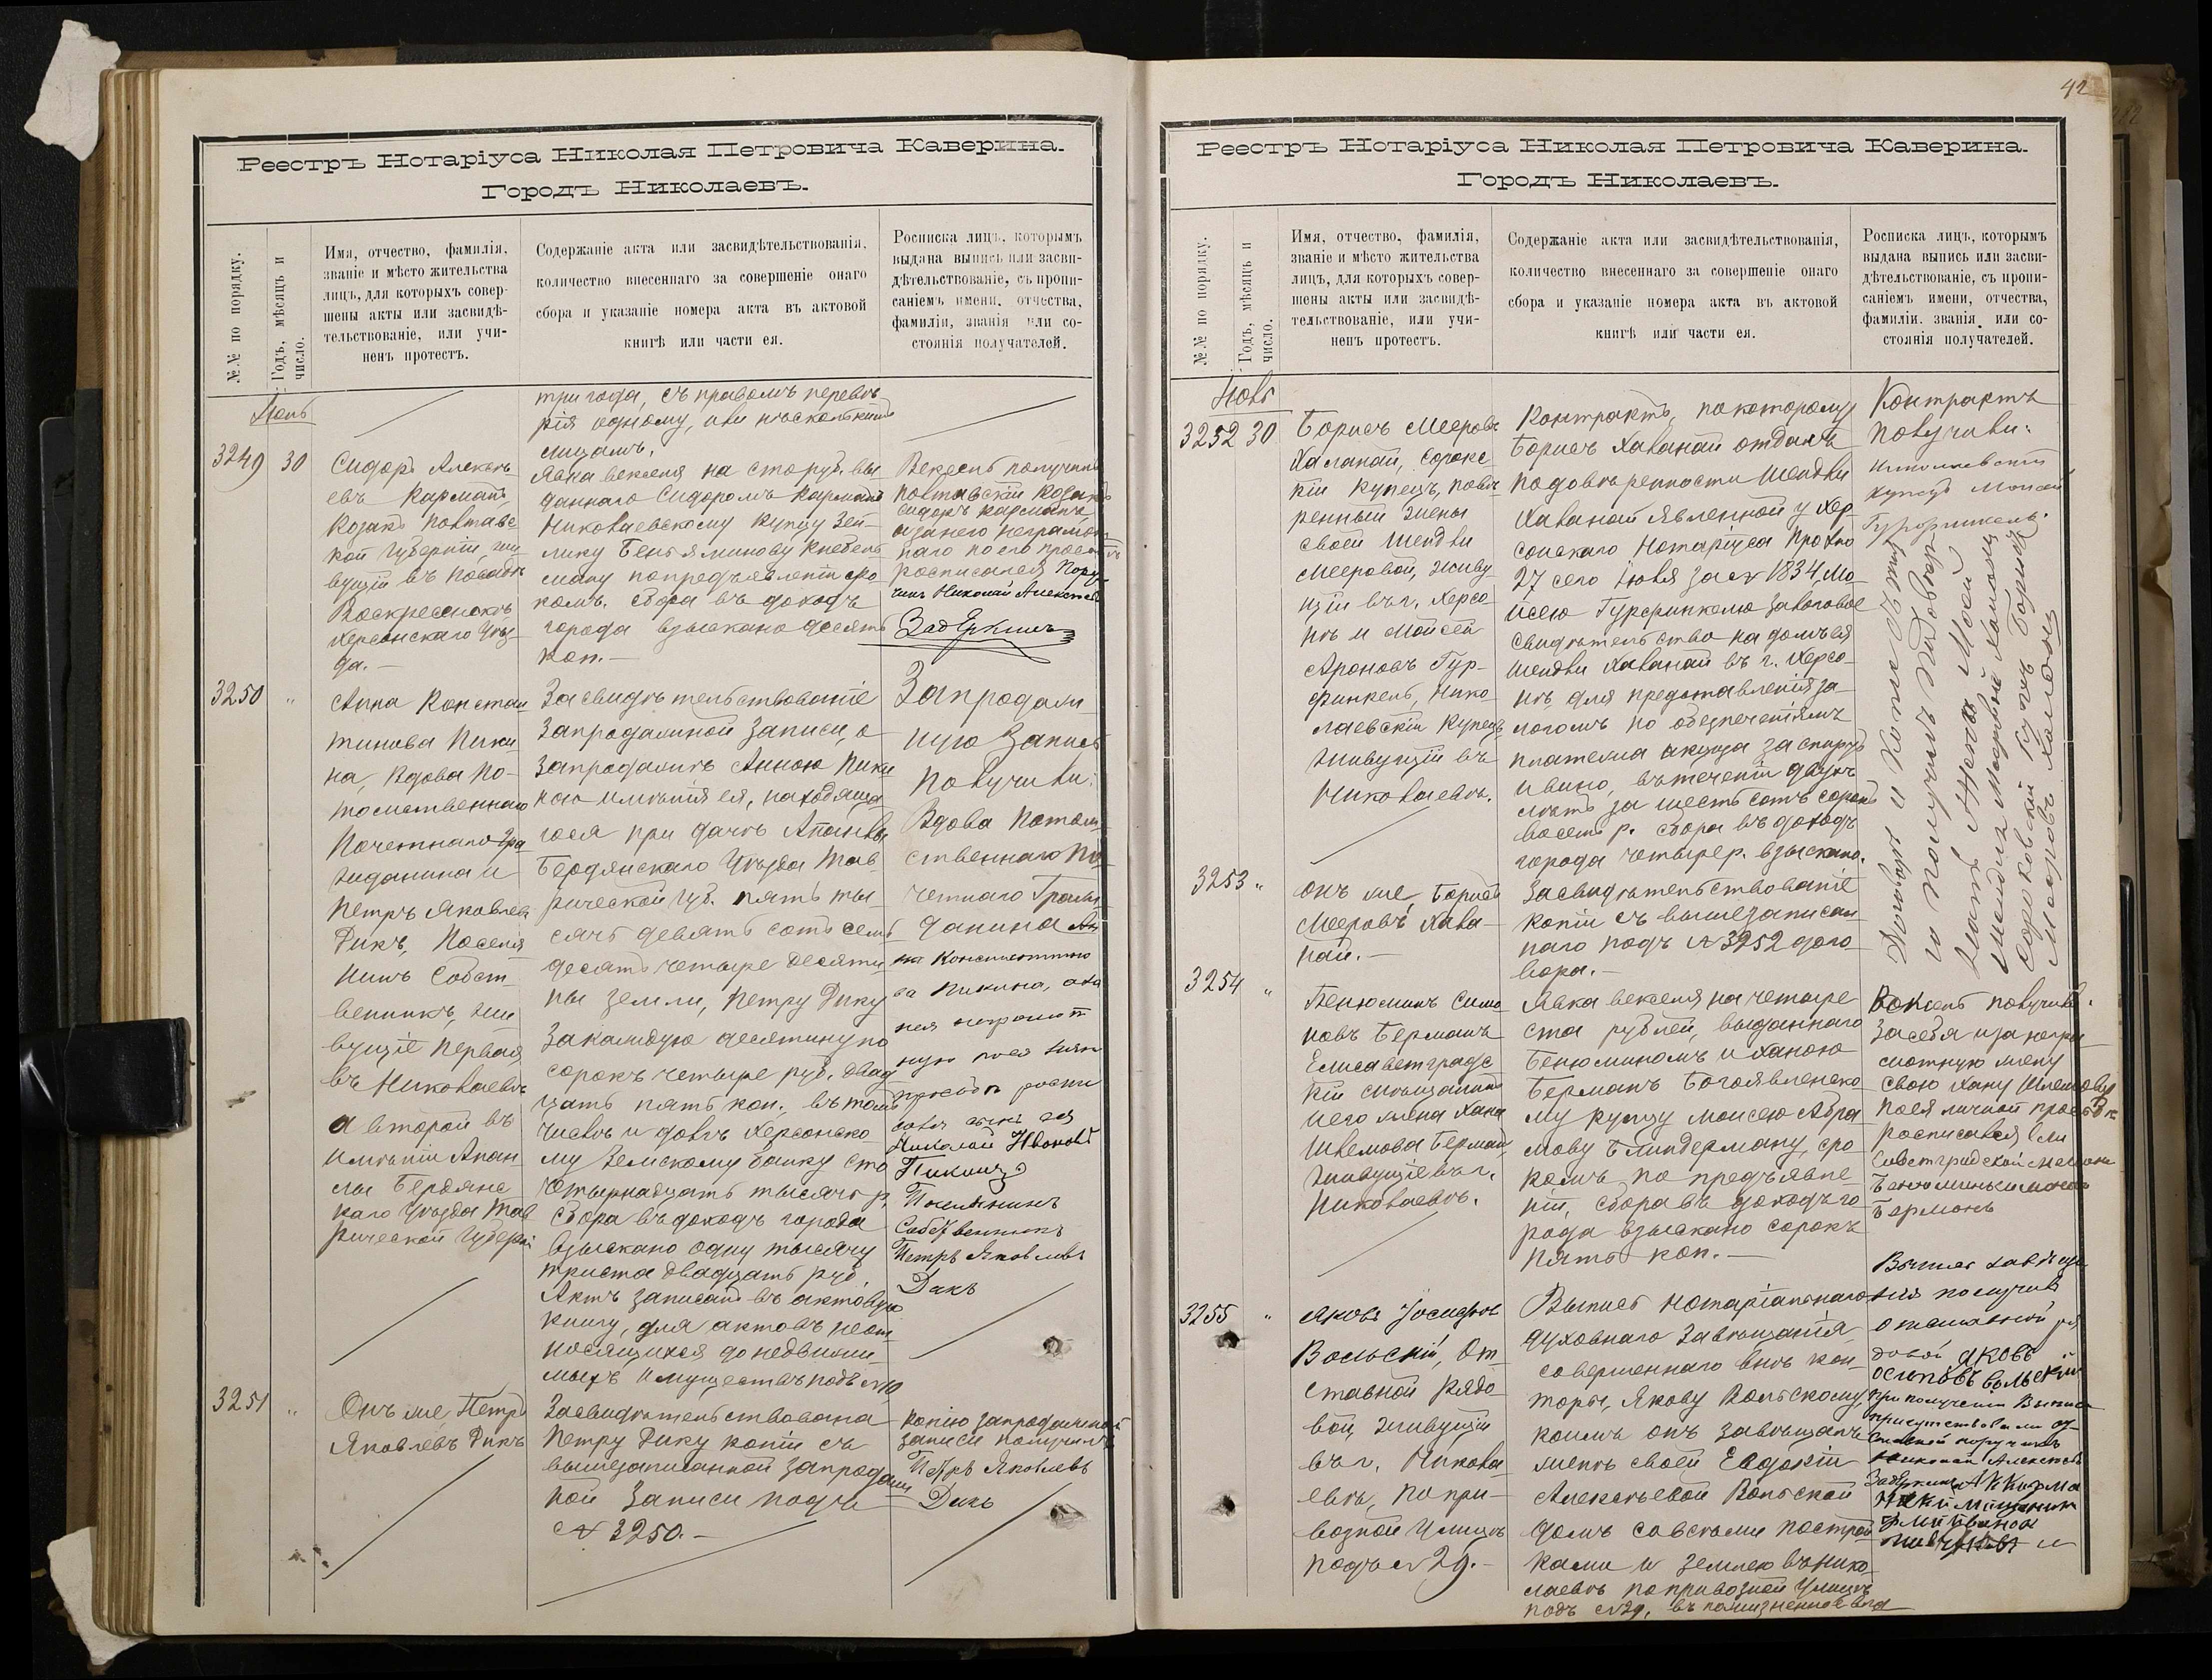 Реестръ Нотаріуса Николая Петровича Каверина.
Городъ Николаевъ.
№№ по порядку.
Годъ, мѣсяцъ и
число.
Имя, отчество, фамилія,
званіе и мѣсто жительства
лицъ, для которыхъ совер-
шены акты или засвидѣ-
тельствованіе, или учи-
ненъ протестъ.
Содержаніе акта или засвидѣтельствованія,
количество внесеннаго за совершеніе онаго
сбора и указаніе номера акта въ актовой
книгѣ или части ея.
Росписка лицъ, которымъ
выдана выпись или засви-
дѣтельствованіе, съ пропи-
саніемъ имени, отчества,
фамиліи, званія или со-
стоянія получателей.
три года, съ правомъ перевѣ
рія одному, или нѣсколькимъ
лицамъ.
3249 30
Сидоръ Алексѣ-
евъ Карманъ,
Козакъ Полтавс
кой Губерніи, жи
вущій въ посадѣ
Воскресенскѣ,
Херсонскаго Уѣз-
да.-
Явка векселя на сто руб. вы-
даннаго Сидоромъ Карманъ
Николаевскому Купцу Зей-
лику Беньяминову Кнебель
ману по предъявленіи сро
комъ. сбора въ доходъ
города взыскано десять
коп.-
Вексель получилъ
Полтавскій Козакъ
Сидоръ Карманъ
а за него неграмот
наго по его просьбѣ
росписался Пору-
чикъ Николай Алексѣевъ
Задеркинъ
3250 "
Анна Констан
тинова Пики
на, Вдова По-
томственнаго
Почетнаго Гра
жданина и
Петръ Яковлевъ
Дикъ, Поселя
нинъ Собст-
венникъ, жи
вущіе первая
въ Николаевѣ
а второй въ
имѣніи Апан-
лы Бердянс
каго Уѣзда Тав
рической Губерніи
Засвидѣтельствованіе
Запродажной Записи, о
запродажѣ Анною Пики
ною имѣнія ея, находяща
гося при дачѣ Апанлы
Бердянскаго Уѣзда Тав
рической Губ. пять ты-
сячъ девять сотъ семь
десятъ четыре десяти
ны земли, Петру Дику
за каждую десятину по
сорокъ четыре руб. двад
цать пять коп., въ томъ
числѣ и долгъ Херсонско
му Земскому банку сто
Четырнадцать тысячъ р.
Сбора въ доходъ города
взыскано одну тысячу
триста двадцать руб.
Актъ записанъ въ актовую
книгу, для актовъ неот
носящихся до недвижи-
мыхъ имуществъ подъ №10
Запродаж
ную Запись
получили:
Вдова Потом
ственнаго По
четнаго Граж
данина Ан
на Константино
ва Пикина, а за
нея неграмот
ную
просьбѣ роспи
Николай Ивановъ
Пикинъ
Поселянинъ
Собственникъ
Петръ Яковлевъ
Дикъ
3251 "
Онъ же, Петръ
Яковлевъ Дикъ
Засвидѣтельствована
Петру Дику копія съ
вышезаписанной запродаж
ной записи подъ
№ 3250.-
Копію запродажной
записи получилъ
Петръ Яковлевъ
Дикъ
42
Реестръ Нотаріуса Николая Петровича Каверина.
Городъ Николаевъ.
№№ по порядку.
Годъ, мѣсяцъ и
число.
Имя, отчество, фамилія,
званіе и мѣсто жительства
лицъ, для которыхъ совер-
шены акты или засвидѣ-
тельствованіе, или учи-
ненъ протестъ.
Содержаніе акта или засвидѣтельствованія,
количество внесеннаго за совершеніе онаго
сбора и указаніе номера акта въ актовой
книгѣ или части ея.
Росписка лицъ, которымъ
выдана выпись или засви-
дѣтельствованіе, съ пропи-
саніемъ имени, отчества,
фамиліи, званія или со-
стоянія получателей.
3252 30
Борисъ Мееровъ
Халанай, Сорокс
кій Купецъ, повѣ
ренный жены
своей Шендли
Мееровой, живу
щій въ г. Херсо
нѣ и Мойсей
Ароновъ Гур-
финкель, Нико
лаевскій Купецъ
живущій въ
Николаевѣ.
Контрактъ, по которому
Борисъ Халанай отдалъ
по довѣренности Шендли
Халанай явленной у Хер
сонскаго Нотаріуса Прохно
27 сего Іюля за № 1834, Мо
йсею Гурфинкелю залоговое
свидѣтельство на домъ ея
Шендли Халанай въ г. Херсо-
нѣ для представленія за-
логомъ по обезпеченіямъ
платежа акциза за спиртъ
и вино, въ теченіи двухъ
лѣтъ за шесть сотъ сорокъ
восемь р. сбора въ доходъ
города четыре р. взыскано.
Контрактъ
получили:
Николаевскій
Купецъ Моисей
Гурфинкель.
Договоръ и Копію съ него
и получилъ
Сорокскій Купецъ Борисъ
Мееровъ Халанай
3253 "
Онъ же, Борисъ
Мееровъ Хала-
най.-
Засвидѣтельствованіе
копіи съ вышезаписан
наго подъ №3252 дого
вора.-
3254 "
Бенюминъ Симо
новъ Берманъ
Елисаветградс
кій мѣщанинъ
и его жена Хана
Шлемова Берманъ,
живущіе въ г.
Николаевѣ.
Явка векселя на четыре
ста рублей, выданнаго
Бенюминомъ и Ханою
Берманъ Богоявленско
му купцу Моисею Абра
мову Блиндерману, сро
комъ по предъявле
ніи, сбора въ доходъ го
рода взыскано сорокъ
пять коп.-
Вексель получилъ
за себя и за негра
мотную жену
свою Хану Шлемову
по ея личной просьбѣ
росписался Ели
саветградской мѣщанинъ
Бенюминъ Симоновъ
Берманъ
3255 "
Яковъ Іосифовъ
Вольскій, От-
ставной Рядо
вой, живущій
въ г. Никола-
евѣ, по при-
возной Улицѣ
подъ №29.-
Выпись нотаріальнаго
духовнаго завѣщанія
совершеннаго внѣ кон-
торы, Якову Вольскому,
коимъ онъ завѣщалъ
женѣ своей Евдокіи
Алексѣевой Вольской
домъ со всѣми построй
ками и землею въ Нико-
лаевѣ по привозной Улицѣ
подъ №29, въ пожизненное вла
Выпись завѣща
нія получилъ
отставной ря
довой Яковъ
Осиповъ Вольскій
При полученіи Выписи
присутствовали от-
ставной поручикъ
Николай Алексѣевъ
Задеркинъ